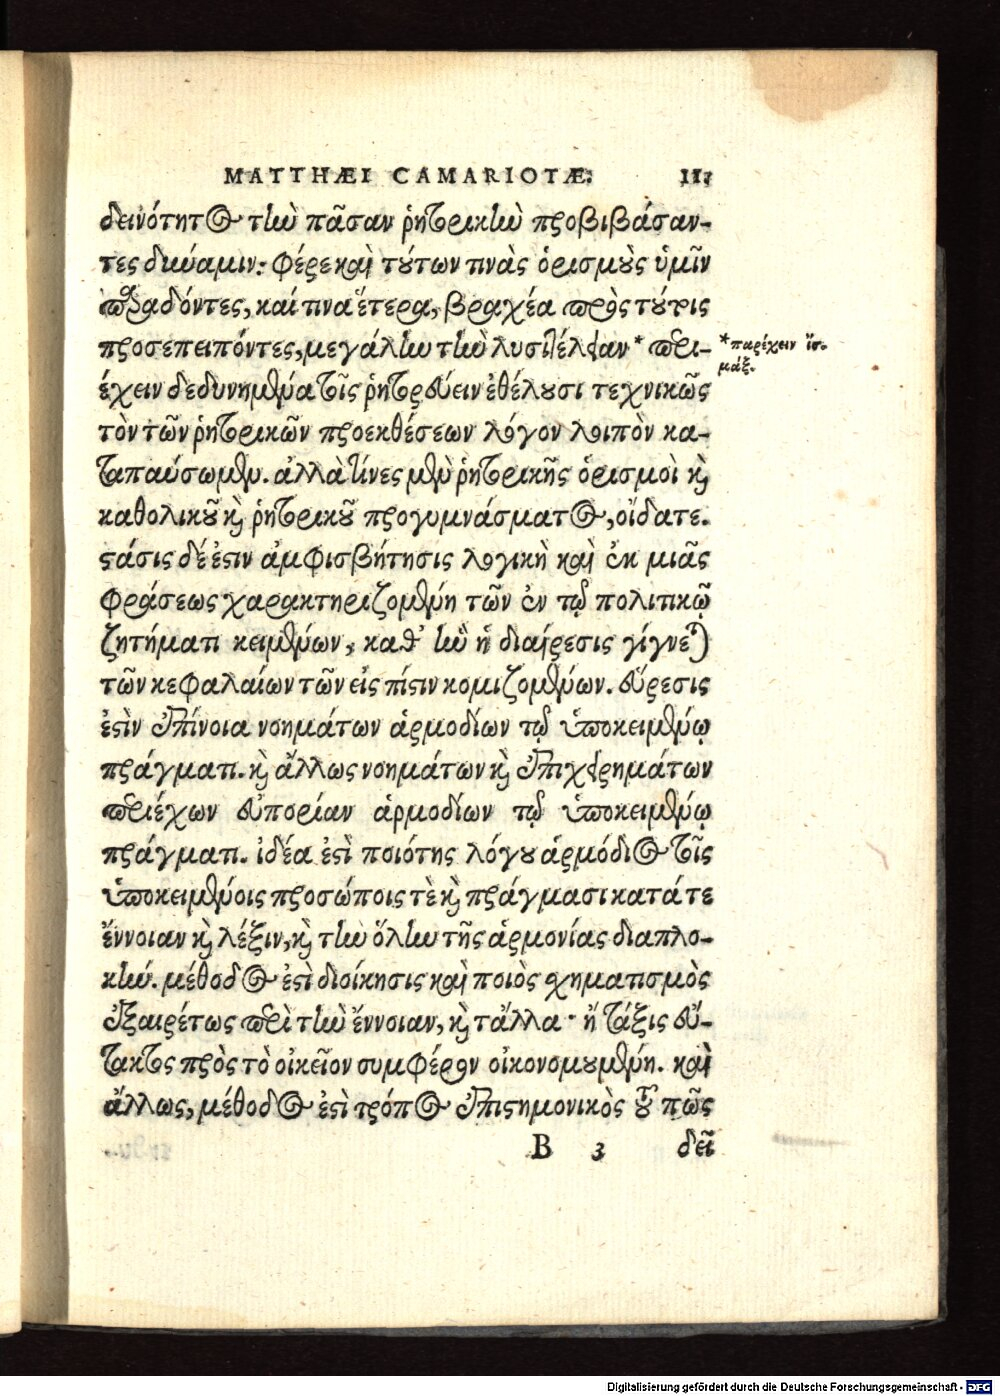 MATTHÆI CAMARIOTÆ.
δεινότητος τὴν πᾶσαν ῥητορικὴν προβιβάσαν-
τες δύναμιν· φέρε καὶ τούτων τινὰς ὁρισμοὺς ὑμῖν
παραδόντες, καί τινα ἕτερα, βραχέα πρὸς τούτοις
προσεπειπόντες, μεγάλην τὴν λυσιτέλειαν * περι-
έχειν δεδυνημένα τοῖς ῥητορεύειν ἐθέλουσι τεχνικῶς
τὸν τῶν ῥητορικῶν προεκθέσεων λόγον λοιπὸν κα-
ταπαύσωμεν. ἀλλὰ τίνες μὲν ῥητορικῆς ὁρισμοὶ καὶ
καθολικοῦ καὶ ῥητορικοῦ προγυμνάσματος, οἴδατε.
στάσις δέ ἐστιν ἀμφισβήτησις λογικὴ καὶ ἐκ μιᾶς
φράσεως χαρακτηριζομένη τῶν ἐν τῷ πολιτικῷ
ζητήματι κειμένων, καθ' ἣν ἡ διαίρεσις γίγνεται
τῶν κεφαλαίων τῶν εἰς πίστιν κομιζομένων. εὕρεσις
ἐστὶν ἐπίνοια νοημάτων ἁρμοδίων τῷ ὑποκειμένῳ
πράγματι. καὶ ἄλλως νοημάτων καὶ ἐπιχειρημάτων
περιέχων εὐπορίαν ἁρμοδίων τῷ ὑποκειμένῳ
πράγματι. ἰδέα ἐστὶ ποιότης λόγου ἁρμόδιος τοῖς
ὑποκειμένοις προσώποις τὲ καὶ πράγμασι κατά τε
ἔννοιαν καὶ λέξιν, καὶ τὴν ὅλην τῆς ἁρμονίας διαπλο-
κήν. μέθοδος ἐστὶ διοίκησις καὶ ποιὸς σχηματισμὸς
ἐξαιρέτως περὶ τὴν ἔννοιαν, καὶ τἄλλα· ἢ τάξις εὔ-
τακτος πρὸς τὸ οἰκεῖον συμφέρον οἰκονομουμένη. καὶ
ἄλλως, μέθοδος ἐστὶ τρόπος ἐπιστημονικὸς τοῦ πῶς
B 3 δεῖ
* παρέχειν ἴσ.
μάξ.